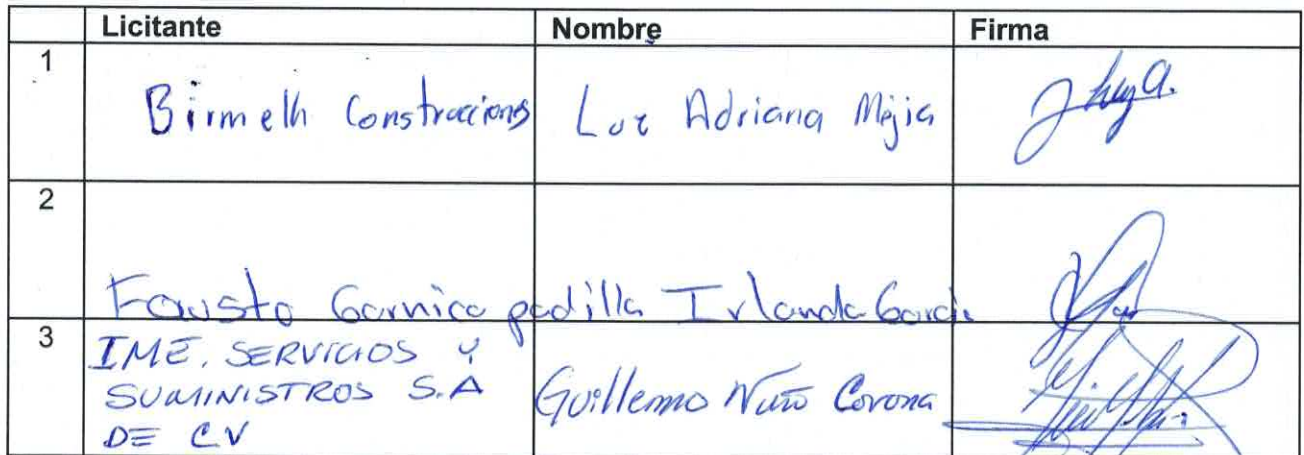 Licitante Nombre Firma
1 Birmelh Construcciones Luz Adriana Mejia
2 Fausto Garnica padilla Irlanda Garci
3 IME. SERVICIOS Y
SUMINISTROS S.A
DE CV
Guillermo Nuño Corona